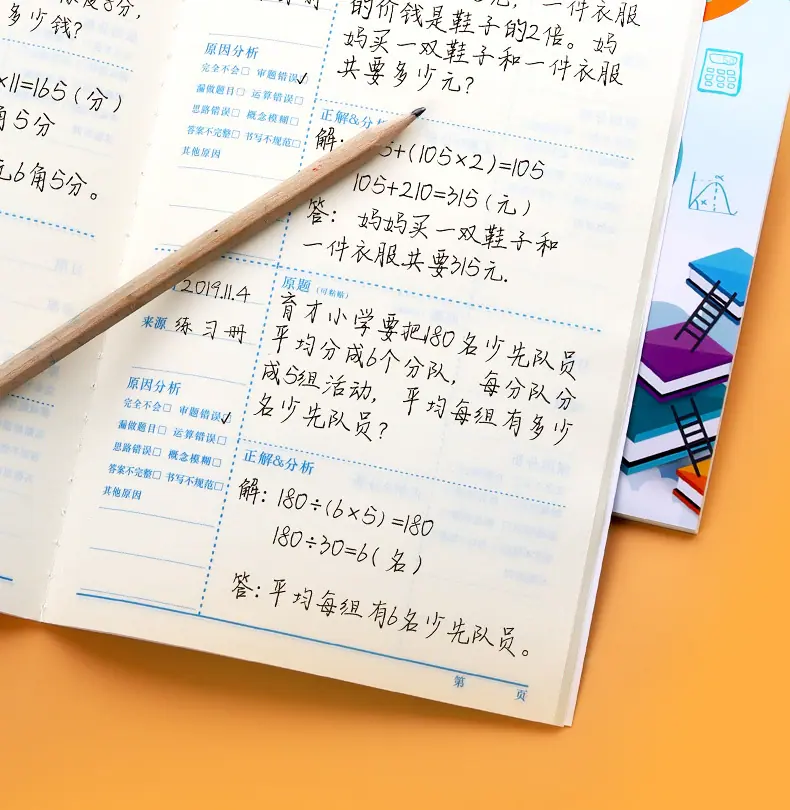 多少钱?
×11=165(分)
角5分
6角5分。
原因分析
完全不会□ 审题错误□✓
漏做题目□ 运算错误□
思路错误□ 概念模糊□
答案不完整□ 书写不规范□
其他原因
一件衣服
的价钱是鞋子的2倍。妈
妈买一双鞋子和一件衣服
共要多少元?
正解&分析
解:
5+(105×2)=105
105+210=315(元)
答: 妈妈买一双鞋子和
一件衣服共要315元.
2019.11.4
来源 练习册
原因分析
完全不会□ 审题错误□✓
漏做题目□ 运算错误□
思路错误□ 概念模糊□
答案不完整□ 书写不规范□
其他原因
原题(可粘贴)
育才小学要把180名少先队员
平均分成6个分队, 每分队分
成5组活动, 平均每组有多少
名少先队员?
正解&分析
解: 180÷(6×5)=180
180÷30=6(名)
答:平均每组有6名少先队员。
第 页